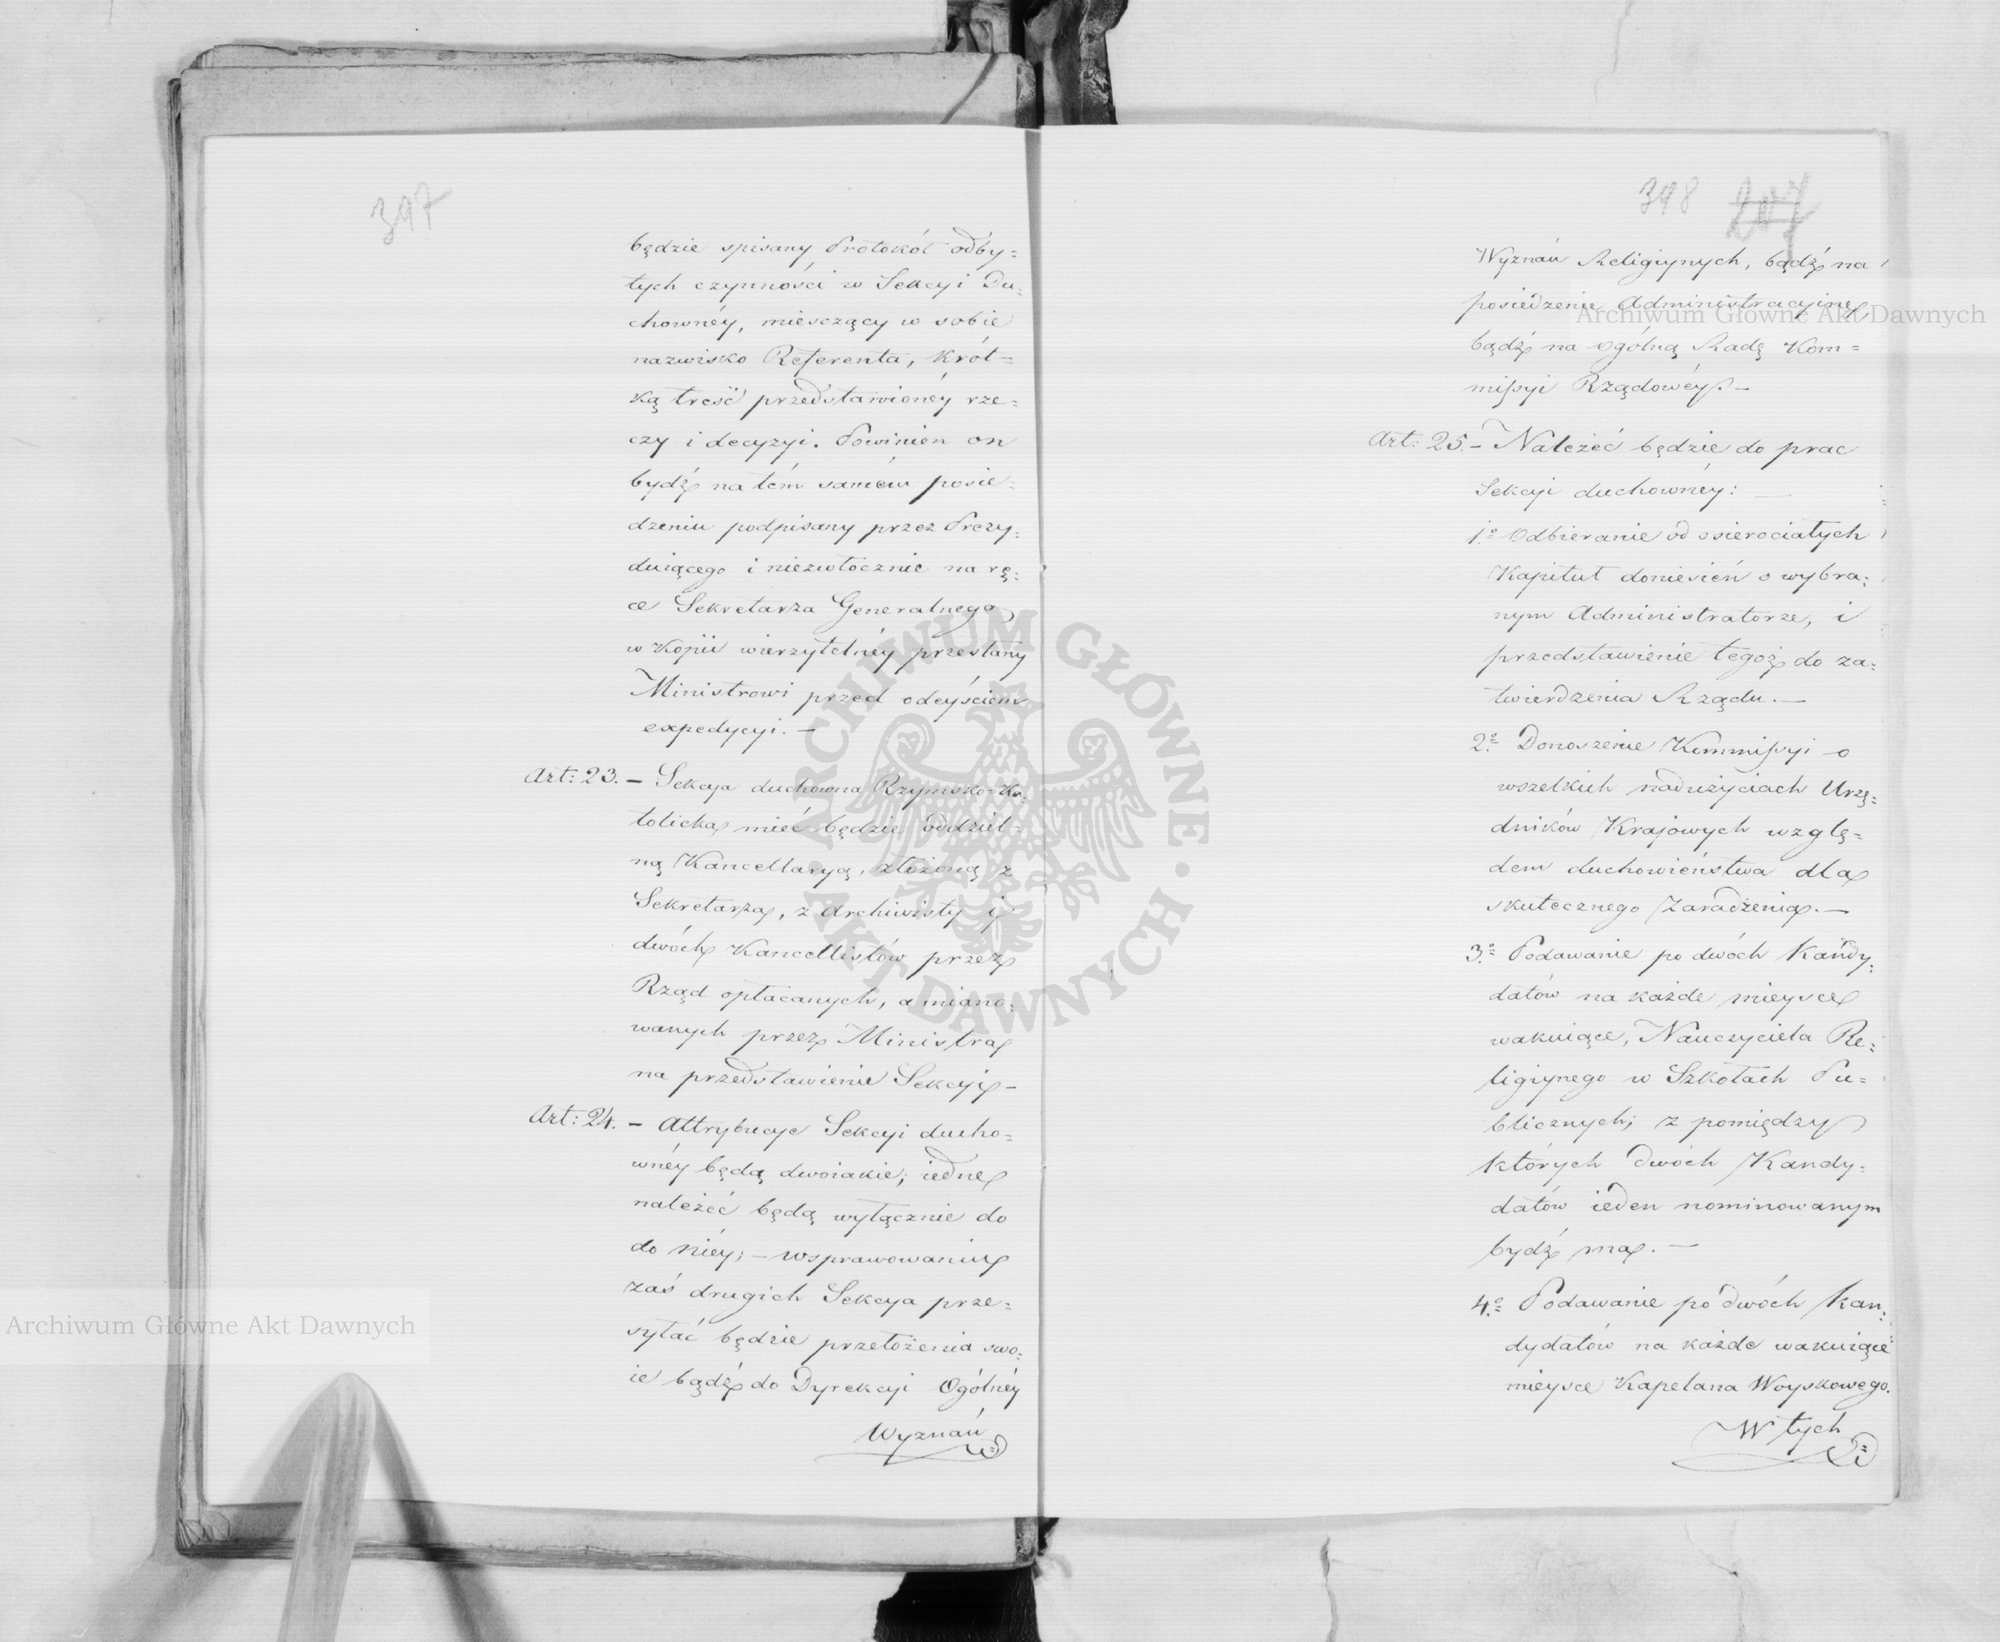 397
będzie spisany Protokół odby=
tych czynności w Sekcyi Du=
chownéy, mieszczący w sobie
nazwisko Referenta, krót=
ką treść przedstawionéy rze=
czy i decyzyi. Powinien on
bydź na tém samém posie=
dzeniu podpisany przez Prezy=
duiącego i niezwłocznie na rę=
ce Sekretarza Generalnego
w Kopii wierzytelnéy przesłany
Ministrowi przed odeyściem
expedycyi. —
Art: 23. — Sekcya duchowna Rzymsko=Ka=
tolicka mieć będzie oddziel=
ną Kancellaryą, złożoną z
Sekretarza, z Archiwisty i
dwóch Kancellistów przez
Rząd opłacanych, a miano=
wanych przez Ministra
na przedstawienie Sekcyi. —
Art: 24. — Attrybucye Sekcyi ducho=
wnéy będą dwoiakie; iedne
należéć będą wyłącznie do
do niéy; — w sprawowaniu
zaś drugich Sekcya prze=
syłać będzie przełożenia swo=
ie bądź do Dyrekcyi Ogólnéy
Wyznań
398 207
Wyznań Religiynych, bądź na
posiedzenie Administracyine,
bądź na ogólną Radę Kom=
missyi Rządowéy. —
Art: 25. — Należéć będzie do prac
Sekcyi duchownéy: —
1.º Odbieranie od osierociałych
Kapituł doniesień o wybra=
nym Administratorze, i
przedstawienie tegoż do za=
twierdzenia Rządu. —
2.º Donoszenie Kommissyi o
wszelkich nadużyciach Urzę=
dników Krajowych wzglę=
dem duchowieństwa dla
skutecznego zaradzenia. —
3.º Podawanie po dwóch Kandy=
datów na każde mieysce
wakuiące, Nauczyciela Re=
ligiynego w Szkołach Pu=
blicznych; z pomiędzy
których dwóch Kandy=
datów ieden nominowanym
bydź ma. —
4.º Podawanie po dwóch Kan=
dydatów na każde wakuiące
mieysce Kapelana Woyskowego.
W tych
Archiwum Główne Akt Dawnych
Archiwum Główne Akt Dawnych
ARCHIWUM GŁÓWNE · AKT DAWNYCH ·